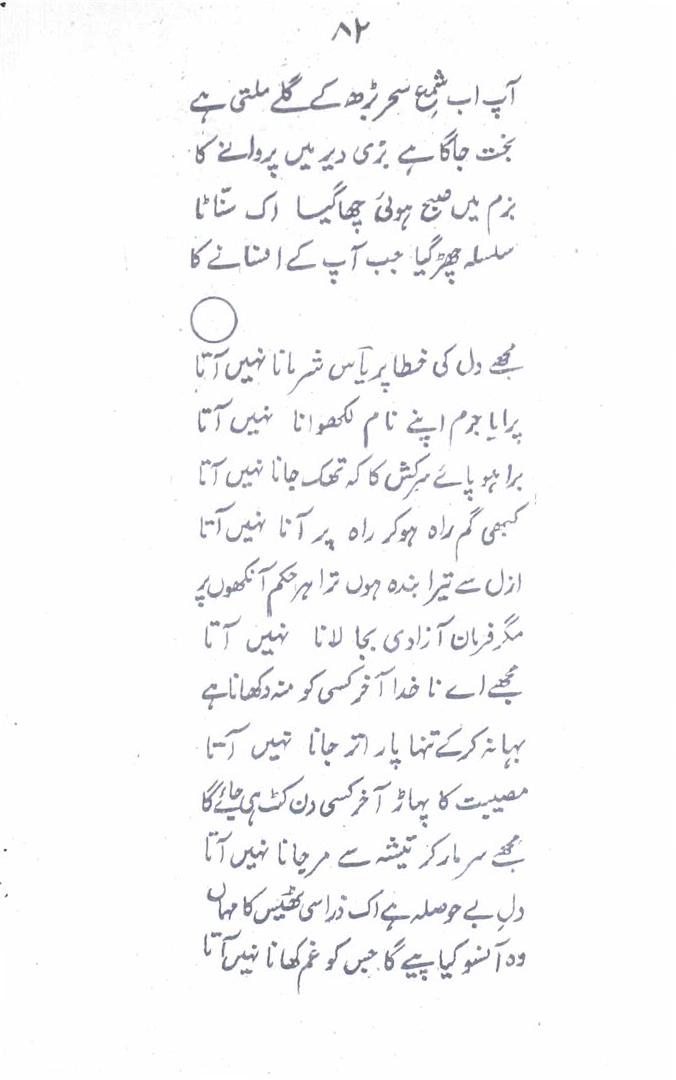 ۸۲
آپ اب شمعِ سحر بڑھ کے گلے ملتی ہے
بخت جاگا ہے بڑی دیر میں پروانے کا
بزم میں صبح ہوئی چھا گیا اک سنّاٹا
سلسلہ چھڑ گیا جب آپ کے افسانے کا
مجھے دل کی خطا پر یاسؔ شرمانا نہیں آتا
پرایا جرم اپنے نام لکھوانا نہیں آتا
برا ہو پائے سرکش کا کہ تھک جانا نہیں آتا
کبھی گم راہ ہو کر راہ پر آنا نہیں آتا
ازل سے تیرا بندہ ہوں ترا ہر حکم آنکھوں پر
مگر فرمان آزادی بجا لانا نہیں آتا
مجھے اے نا خدا آخر کسی کو منہ دکھانا ہے
بہانہ کر کے تنہا پار اتر جانا نہیں آتا
مصیبت کا پہاڑ آخر کسی دن کٹ ہی جائے گا
مجھے سر مار کر تیشہ سے مر جانا نہیں آتا
دلِ بے حوصلہ ہے اک ذرا سی ٹھیس کا مہماں
وہ آنسو کیا پیے گا جس کو غم کھانا نہیں آتا